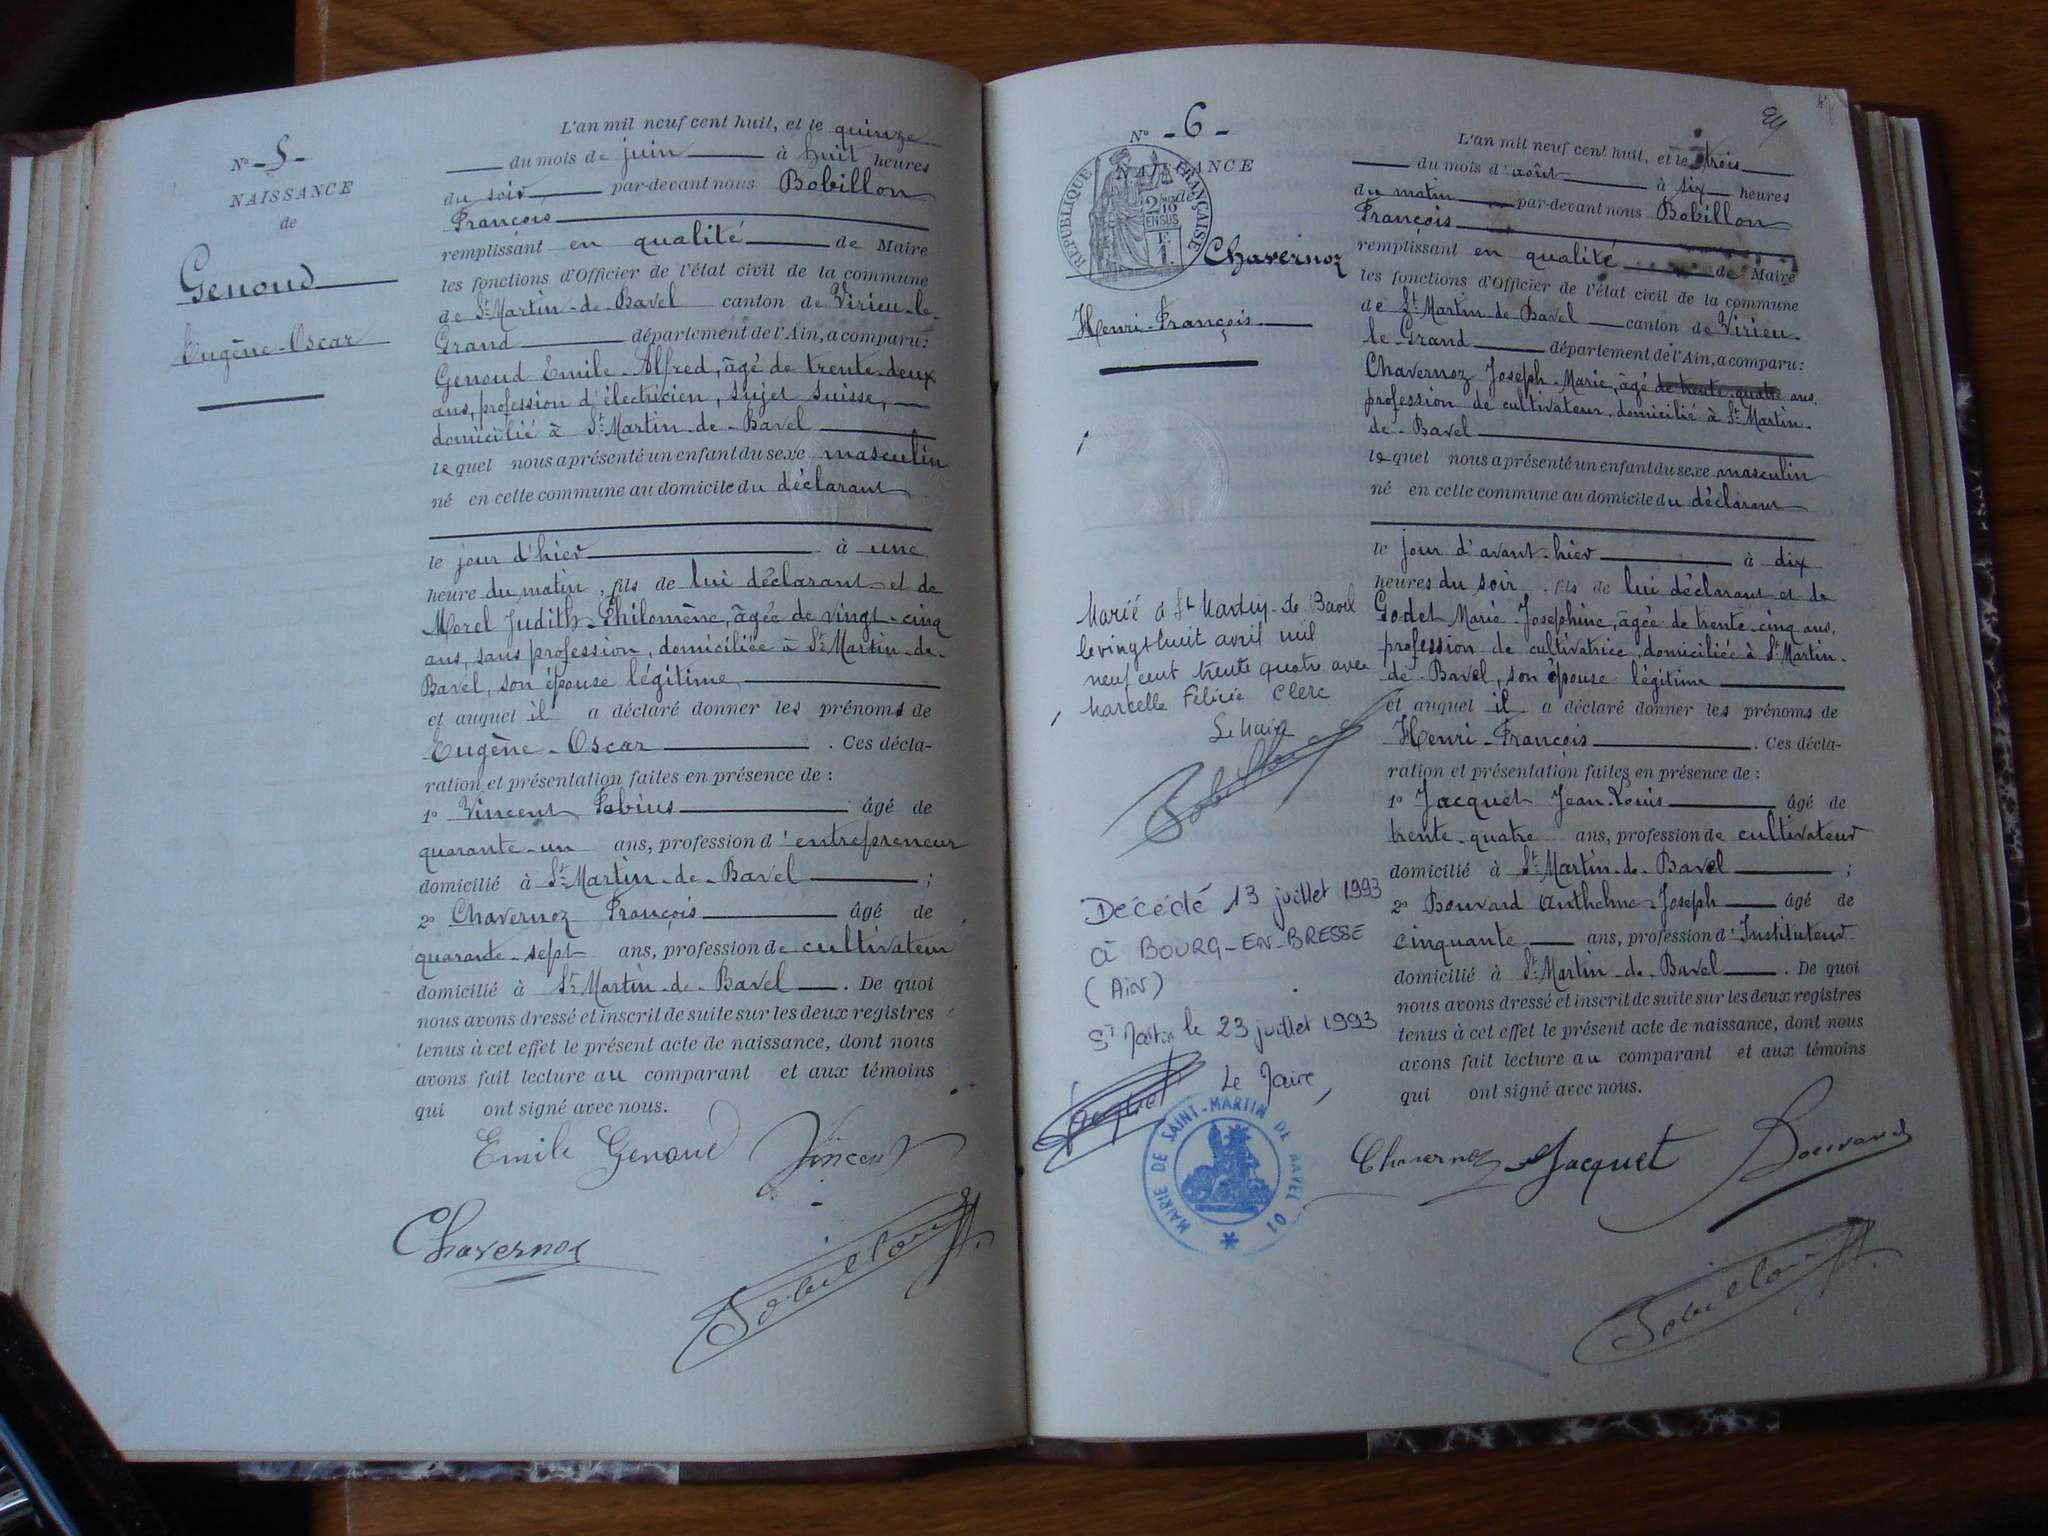 N° - 5 -
NAISSANCE
de
Genoud
Eugène-Oscar
L'an mil neuf cent huit, et le quinze
du mois de juin à huit heures
du soir par-devant nous Bobillon
François
remplissant en qualité de Maire
les fonctions d'Officier de l'état civil de la commune
de St Martin-de-Bavel canton de Virieu-le-
Grand département de l'Ain, a comparu:
Genoud Emile-Alfred, âgé de trente-deux
ans, profession d'électricien, sujet suisse,
domicilié à St Martin-de-Bavel
lequel nous a présenté un enfant du sexe masculin
né en cette commune au domicile du déclarant
le jour d'hier à une
heure du matin, fils de lui déclarant et de
Morel Judith-Philomène, âgée de vingt-cinq
ans, sans profession, domiciliée à St Martin-de-
Bavel, son épouse légitime
et auquel il a déclaré donner les prénoms de
Eugène-Oscar. Ces décla-
ration et présentation faites en présence de :
1° Vincent Fabius âgé de
quarante-un ans, profession d'entrepreneur
domicilié à St Martin-de-Bavel ;
2° Chavernoz François âgé de
quarante-sept ans, profession de cultivateur
domicilié à St Martin-de-Bavel. De quoi
nous avons dressé et inscrit de suite sur les deux registres
tenus à cet effet le présent acte de naissance, dont nous
avons fait lecture au comparant et aux témoins
qui ont signé avec nous.
Emile Genoud Vincent
Chavernoz
Bobillon
47
N° - 6 -
RÉPUBLIQUE FRANÇAISE
2 10
EN SUS
F.
1.
de
Chavernoz
Henri-François
Marié à St Martin-de-Bavel
le vingt huit avril mil
neuf cent trente quatre avec
Marcelle Félicie Clerc
Le Maire
Bobillon
Décédé 13 juillet 1993
à BOURG-EN-BRESSE
(Ain)
St Martin le 23 juillet 1993
Le Maire,
MAIRIE DE SAINT-MARTIN DE BAVEL 01
L'an mil neuf cent huit, et le trois
du mois d'août à six heures
du matin par-devant nous Bobillon
François
remplissant en qualité de Maire
les fonctions d'Officier de l'état civil de la commune
de St Martin-de-Bavel canton de Virieu-
le-Grand département de l'Ain, a comparu:
Chavernoz Joseph-Marie, âgé de trente-quatre ans,
profession de cultivateur, domicilié à St Martin-
de-Bavel
lequel nous a présenté un enfant du sexe masculin
né en cette commune au domicile du déclarant
le jour d'avant-hier à dix
heures du soir, fils de lui déclarant et de
Godet Marie-Josephine, âgée de trente-cinq ans,
profession de cultivatrice, domiciliée à St Martin-
de-Bavel, son épouse légitime
et auquel il a déclaré donner les prénoms de
Henri-François. Ces décla-
ration et présentation faites en présence de :
1° Jacquet Jean-Louis âgé de
trente-quatre ans, profession de cultivateur
domicilié à St Martin-de-Bavel ;
2° Bouvard Anthelme-Joseph âgé de
cinquante ans, profession d'Instituteur
domicilié à St Martin-de-Bavel. De quoi
nous avons dressé et inscrit de suite sur les deux registres
tenus à cet effet le présent acte de naissance, dont nous
avons fait lecture au comparant et aux témoins
qui ont signé avec nous.
Chavernoz Jacquet Bouvard
Bobillon